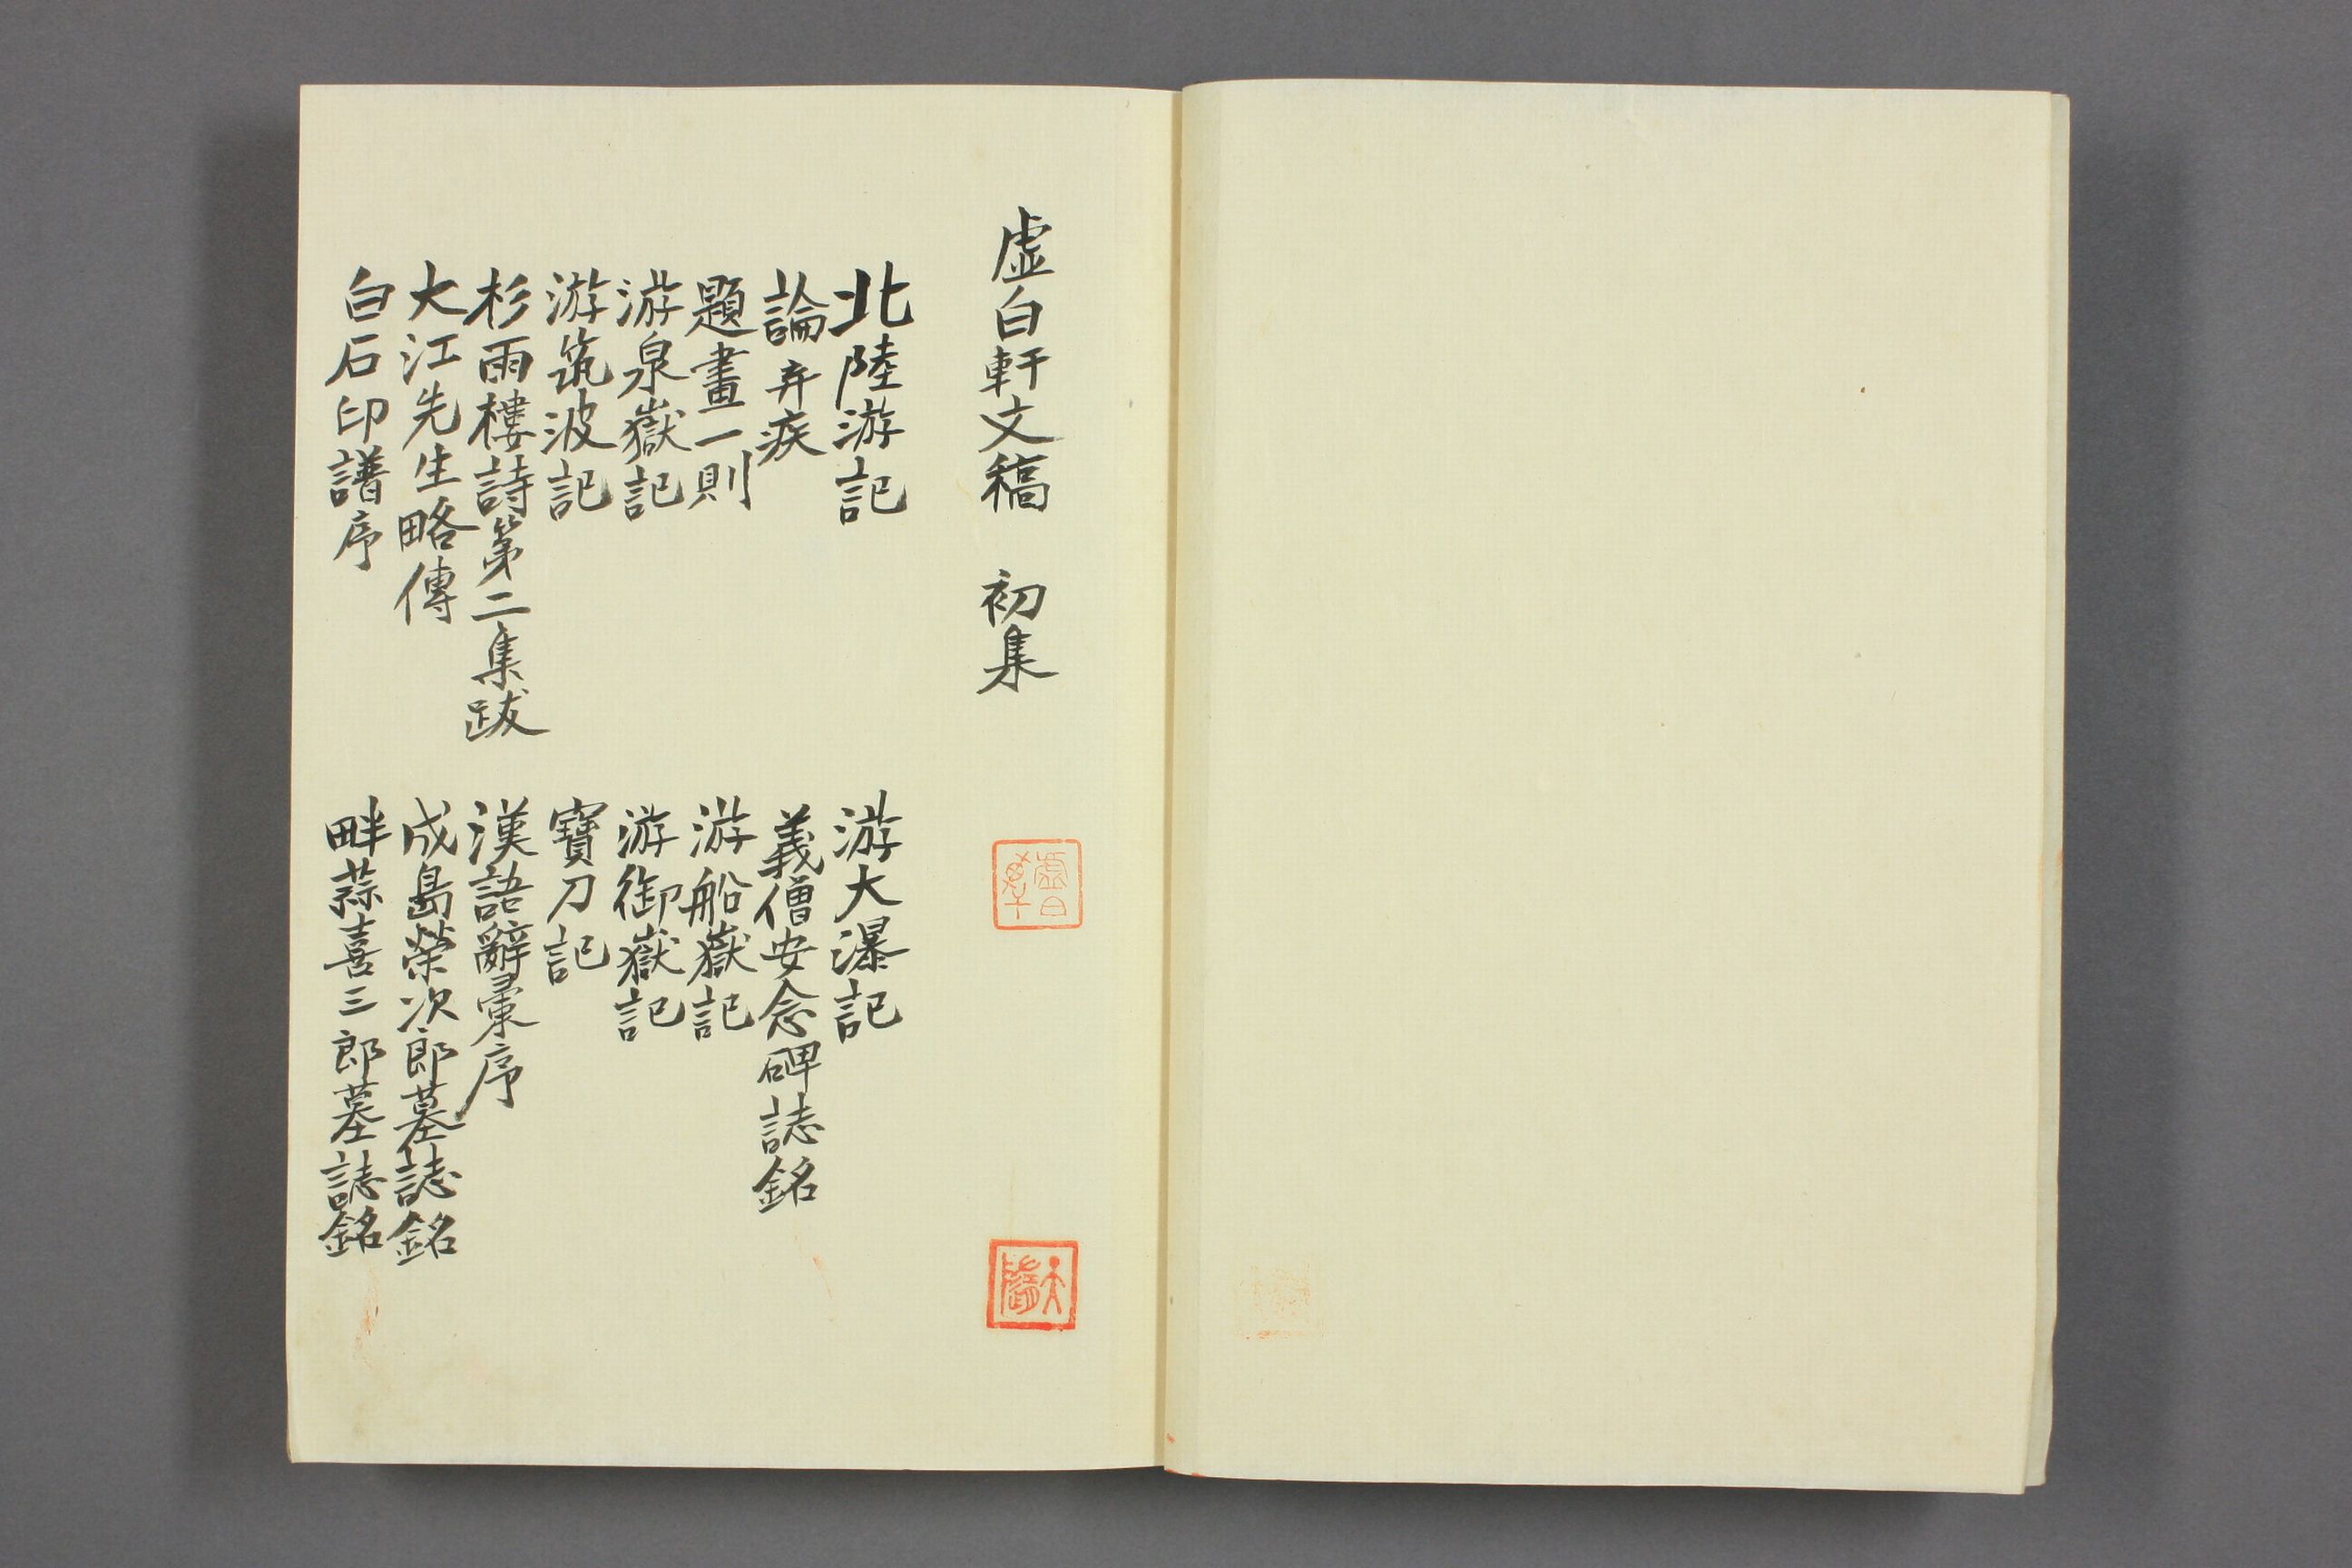 虚白軒文稿　初集
北陸游記
游大瀑記
論弃疾
義僧安念碑誌銘
題畫一則
游船嶽記
游泉嶽記
游御嶽記
游筑波記
寶刀記
杉雨樓詩第二集跋
漢語辭彙序
大江先生略傳
成島榮次郎墓誌銘
白石印譜序
畔蒜喜三郎墓誌銘